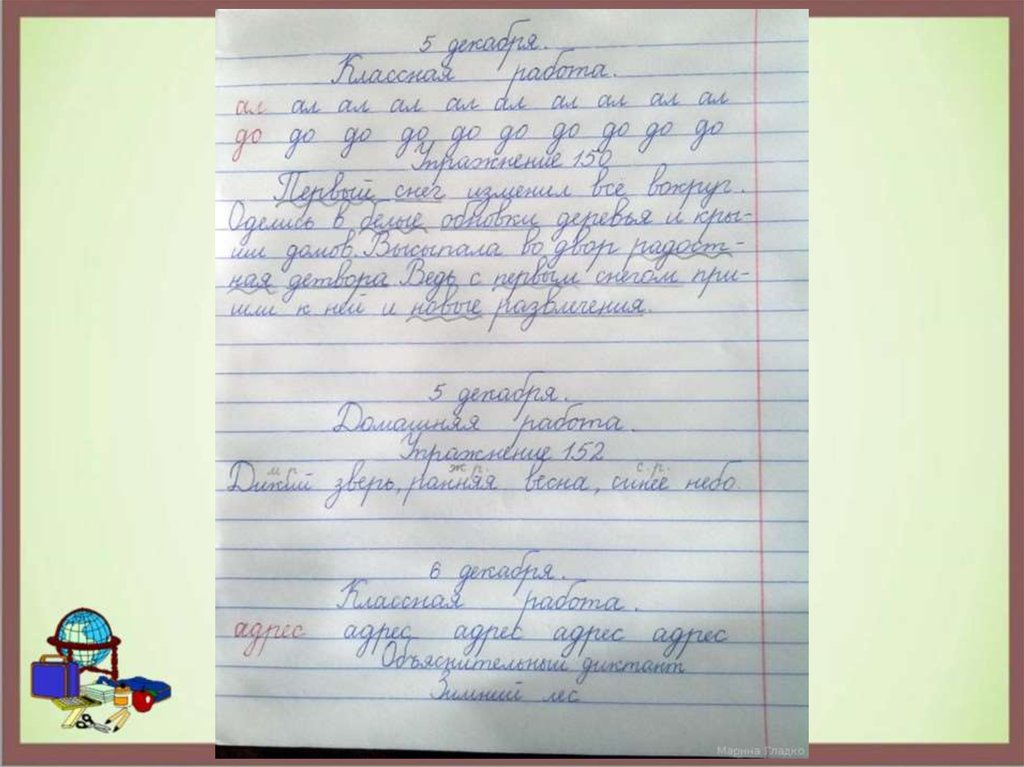 5 декабря.
Классная работа.
ал ал ал ал ал ал ал ал ал ал
до до до до до до до до до до
Упражнение 150
Первый снег изменил все вокруг.
Оделись в белые обновки деревья и кры-
ши домов. Высыпала во двор радост-
ная детвора. Ведь с первым снегом при-
шли к ней и новые развлечения.
5 декабря.
Домашняя работа.
Упражнение 152
м.р. ж.р. с.р.
Дикий зверь, ранняя весна, синее небо.
6 декабря.
Классная работа.
адрес адрес адрес адрес адрес
Объяснительный диктант
Зимний лес
Марина Гладко